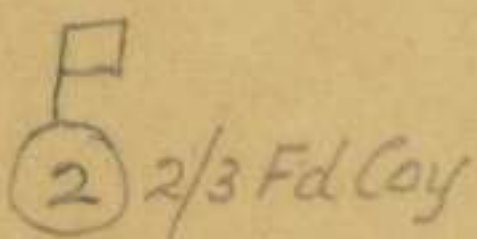 2 2/3 Fd Coy